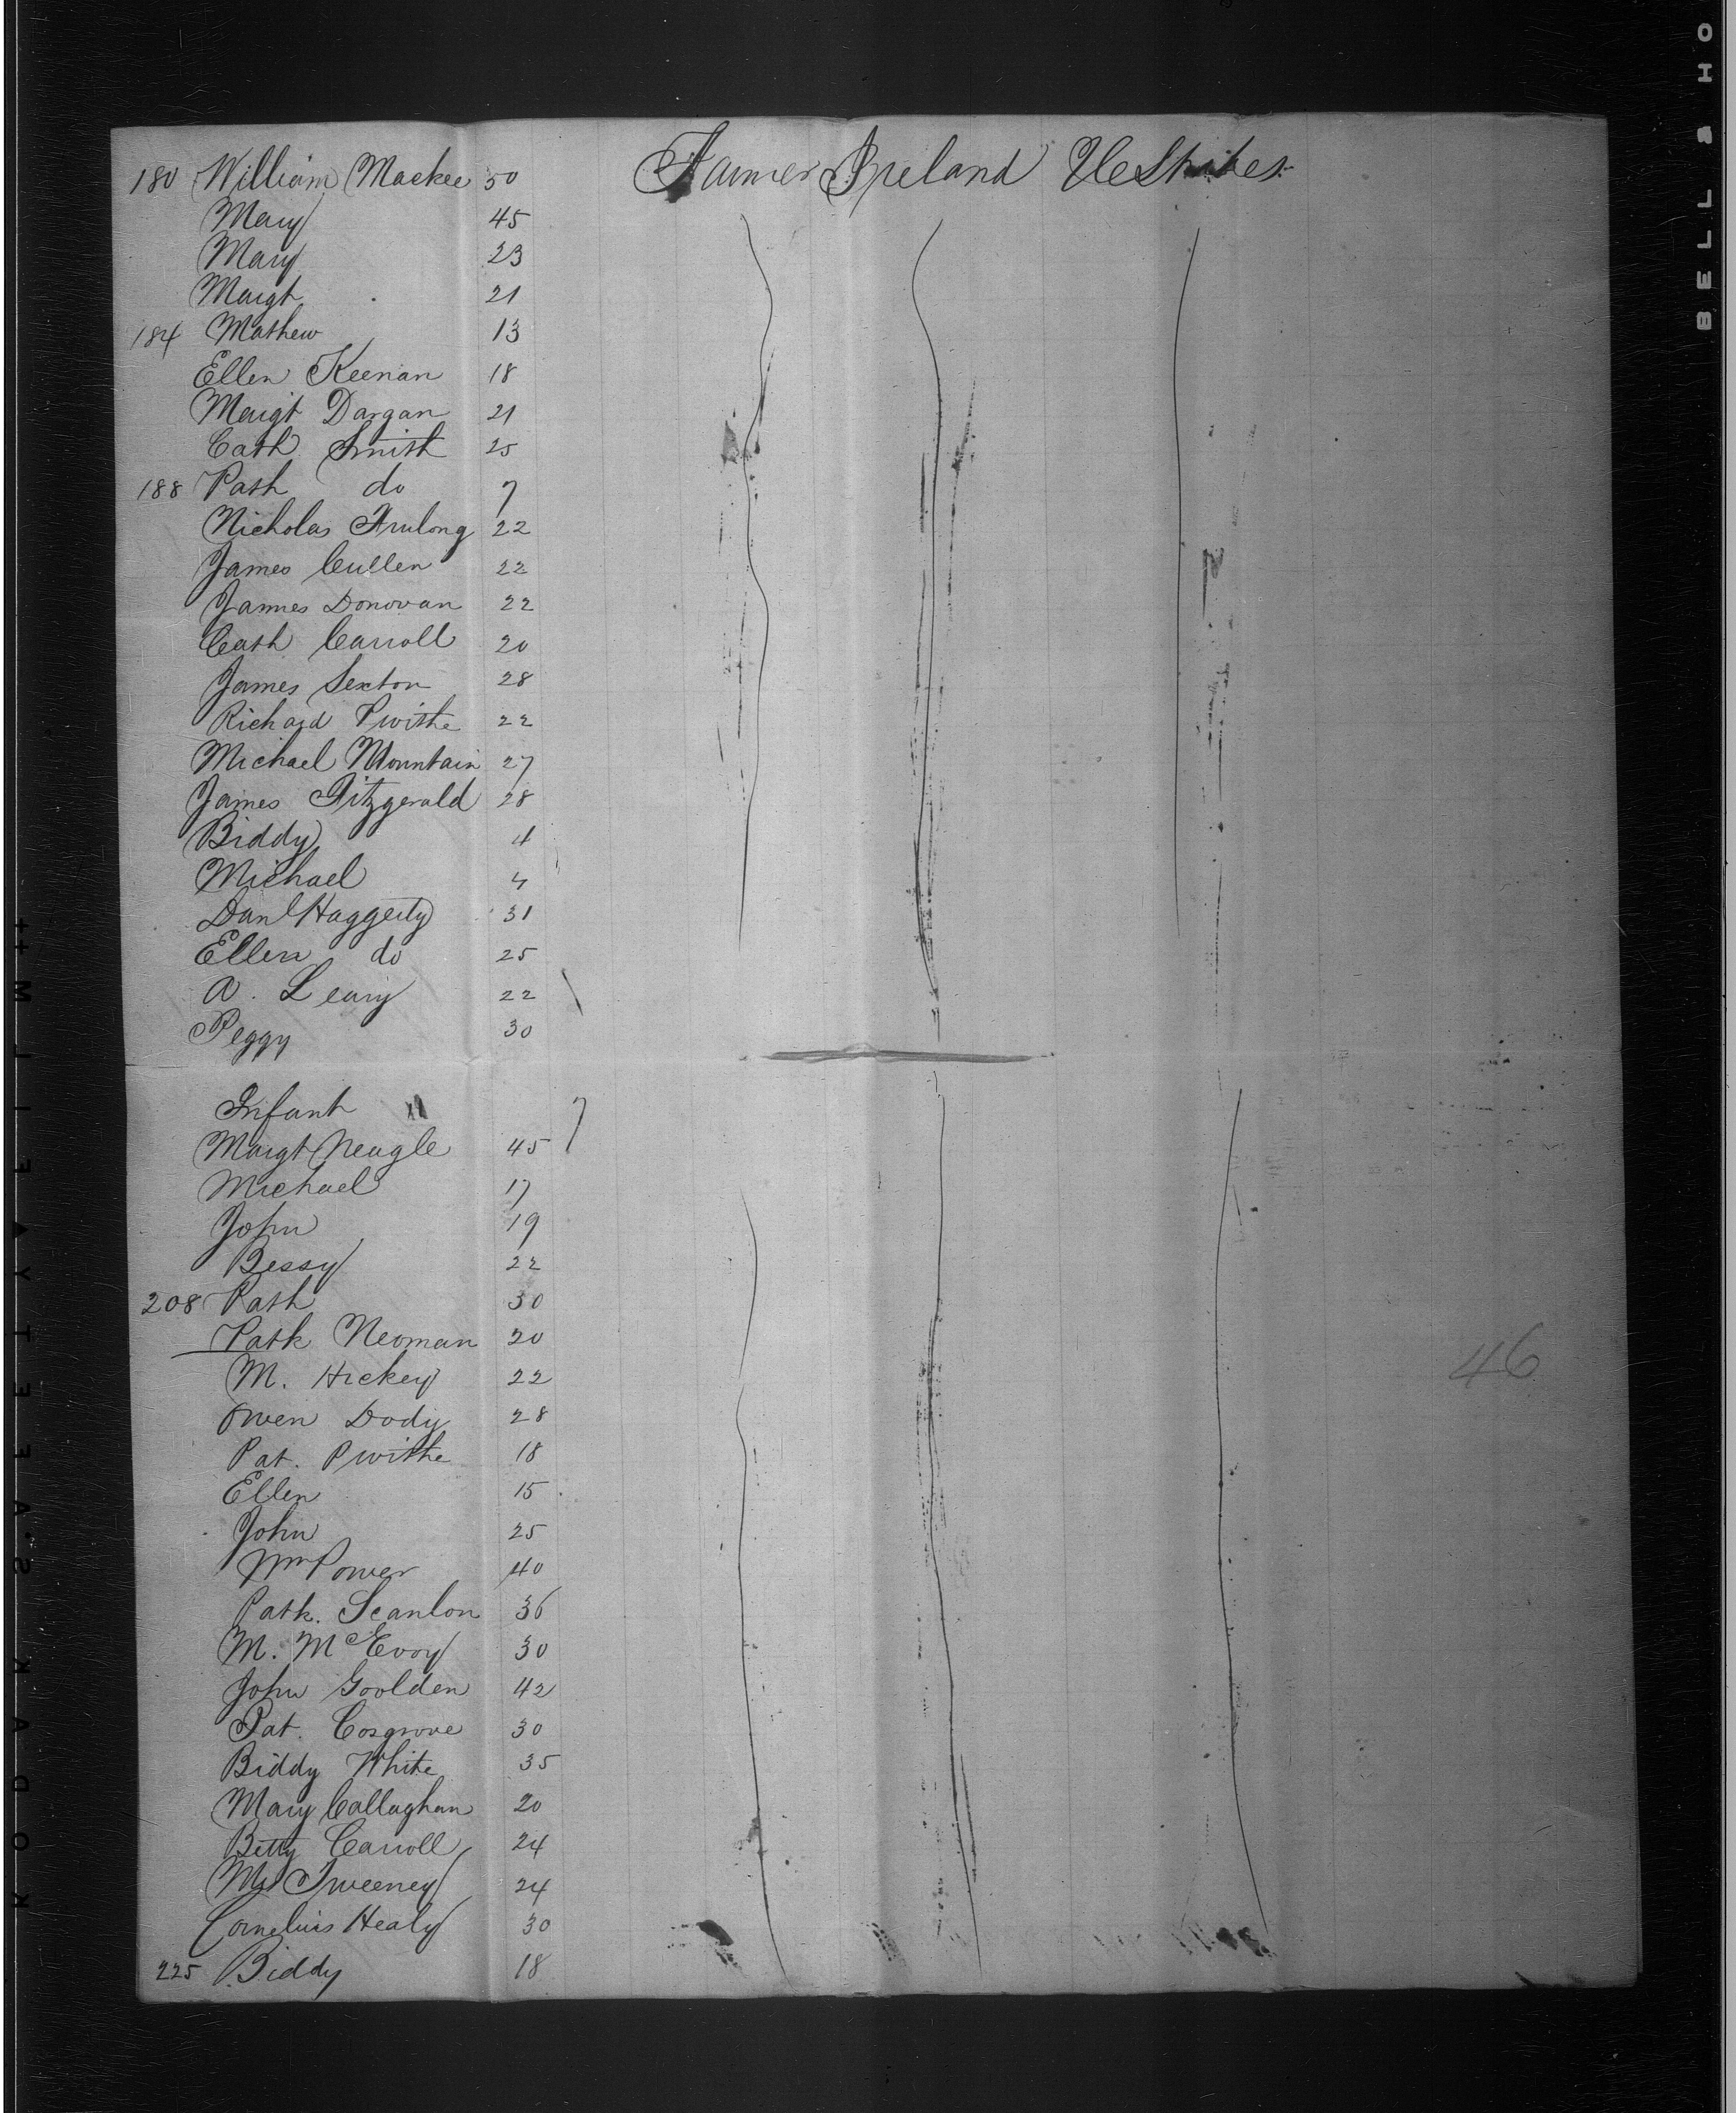 180 William Mackee 50 Farmer Ireland U States
Mary 45
Mary 23
Margt 21
184 Mathew 13
Ellen Keenan 18
Margt Dargan 21
Cath Smith 25
188 Path do 7
Nicholas Frulong 22
James Cullen 22
James Donovan 22
Cath Carroll 20
James Sexton 28
Richard Pwithe 22
Michael Mountain 27
James Fitzgerald 28
Biddy 4
Michael 4
Danl Haggerty 31
Ellen do 25
A. Leary 22
Peggy 30
Infant
Margt Neagle 45
Michael 17
John 19
Bessy 22
208 Path 30
Patk Neoman 20
M. Hickey 22
Owen Dody 28
Pat. Pwithe 18
Ellen 15
John 25
Wm Power 40
Patk. Scanlon 36
M. McEvoy 30
John Goolden 42
Pat. Cosgrove 30
Biddy White 35
Mary Callaghan 20
Betty Carroll 24
Sweeney 24
Cornelius Healy 30
225 Biddy 18
46
BELL & HO
KODAK SAFETY FILM